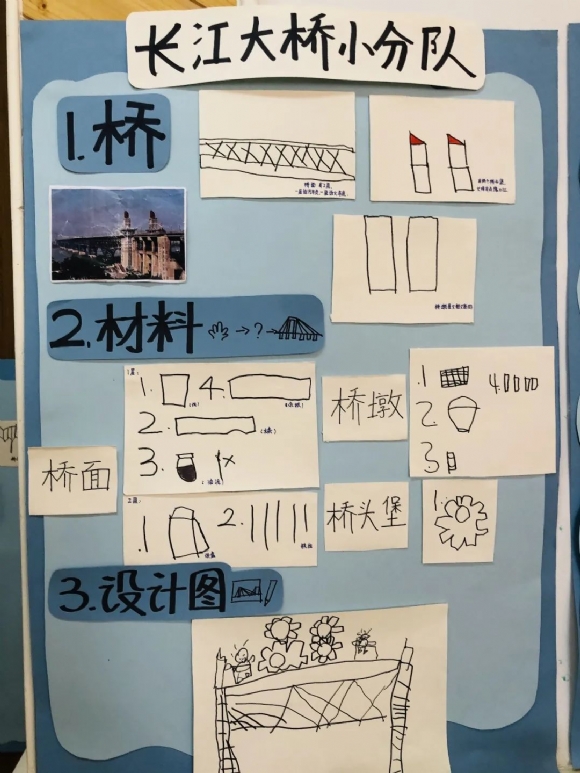 长江大桥小分队
1.桥
2.材料 → ? →
1层:
1. 4.
2.
3.
桥墩
1
2
3
4.
桥面
2层:
1 2.
桥头堡
1.
3.设计图